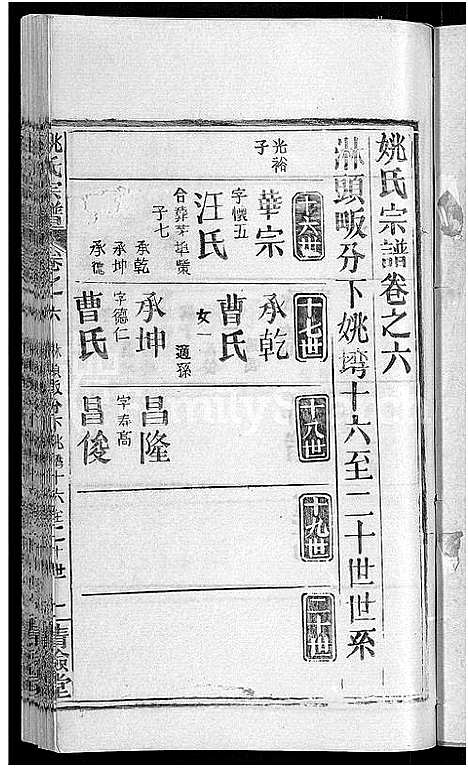 姚氏宗譜卷之六
淋頭畈分下姚塆十六至二十世世系
十六世
光裕子
華宗
字懷五
汪氏
合葬
子七
承乾
承坤
承德
十七世
承乾
曹氏
女一
適孫
承坤
字德仁
曹氏
十八世
昌隆
字泰高
昌俊
十九世
二十世
姚氏宗譜
卷之六
淋頭畈分下姚塆十六至二十世
一